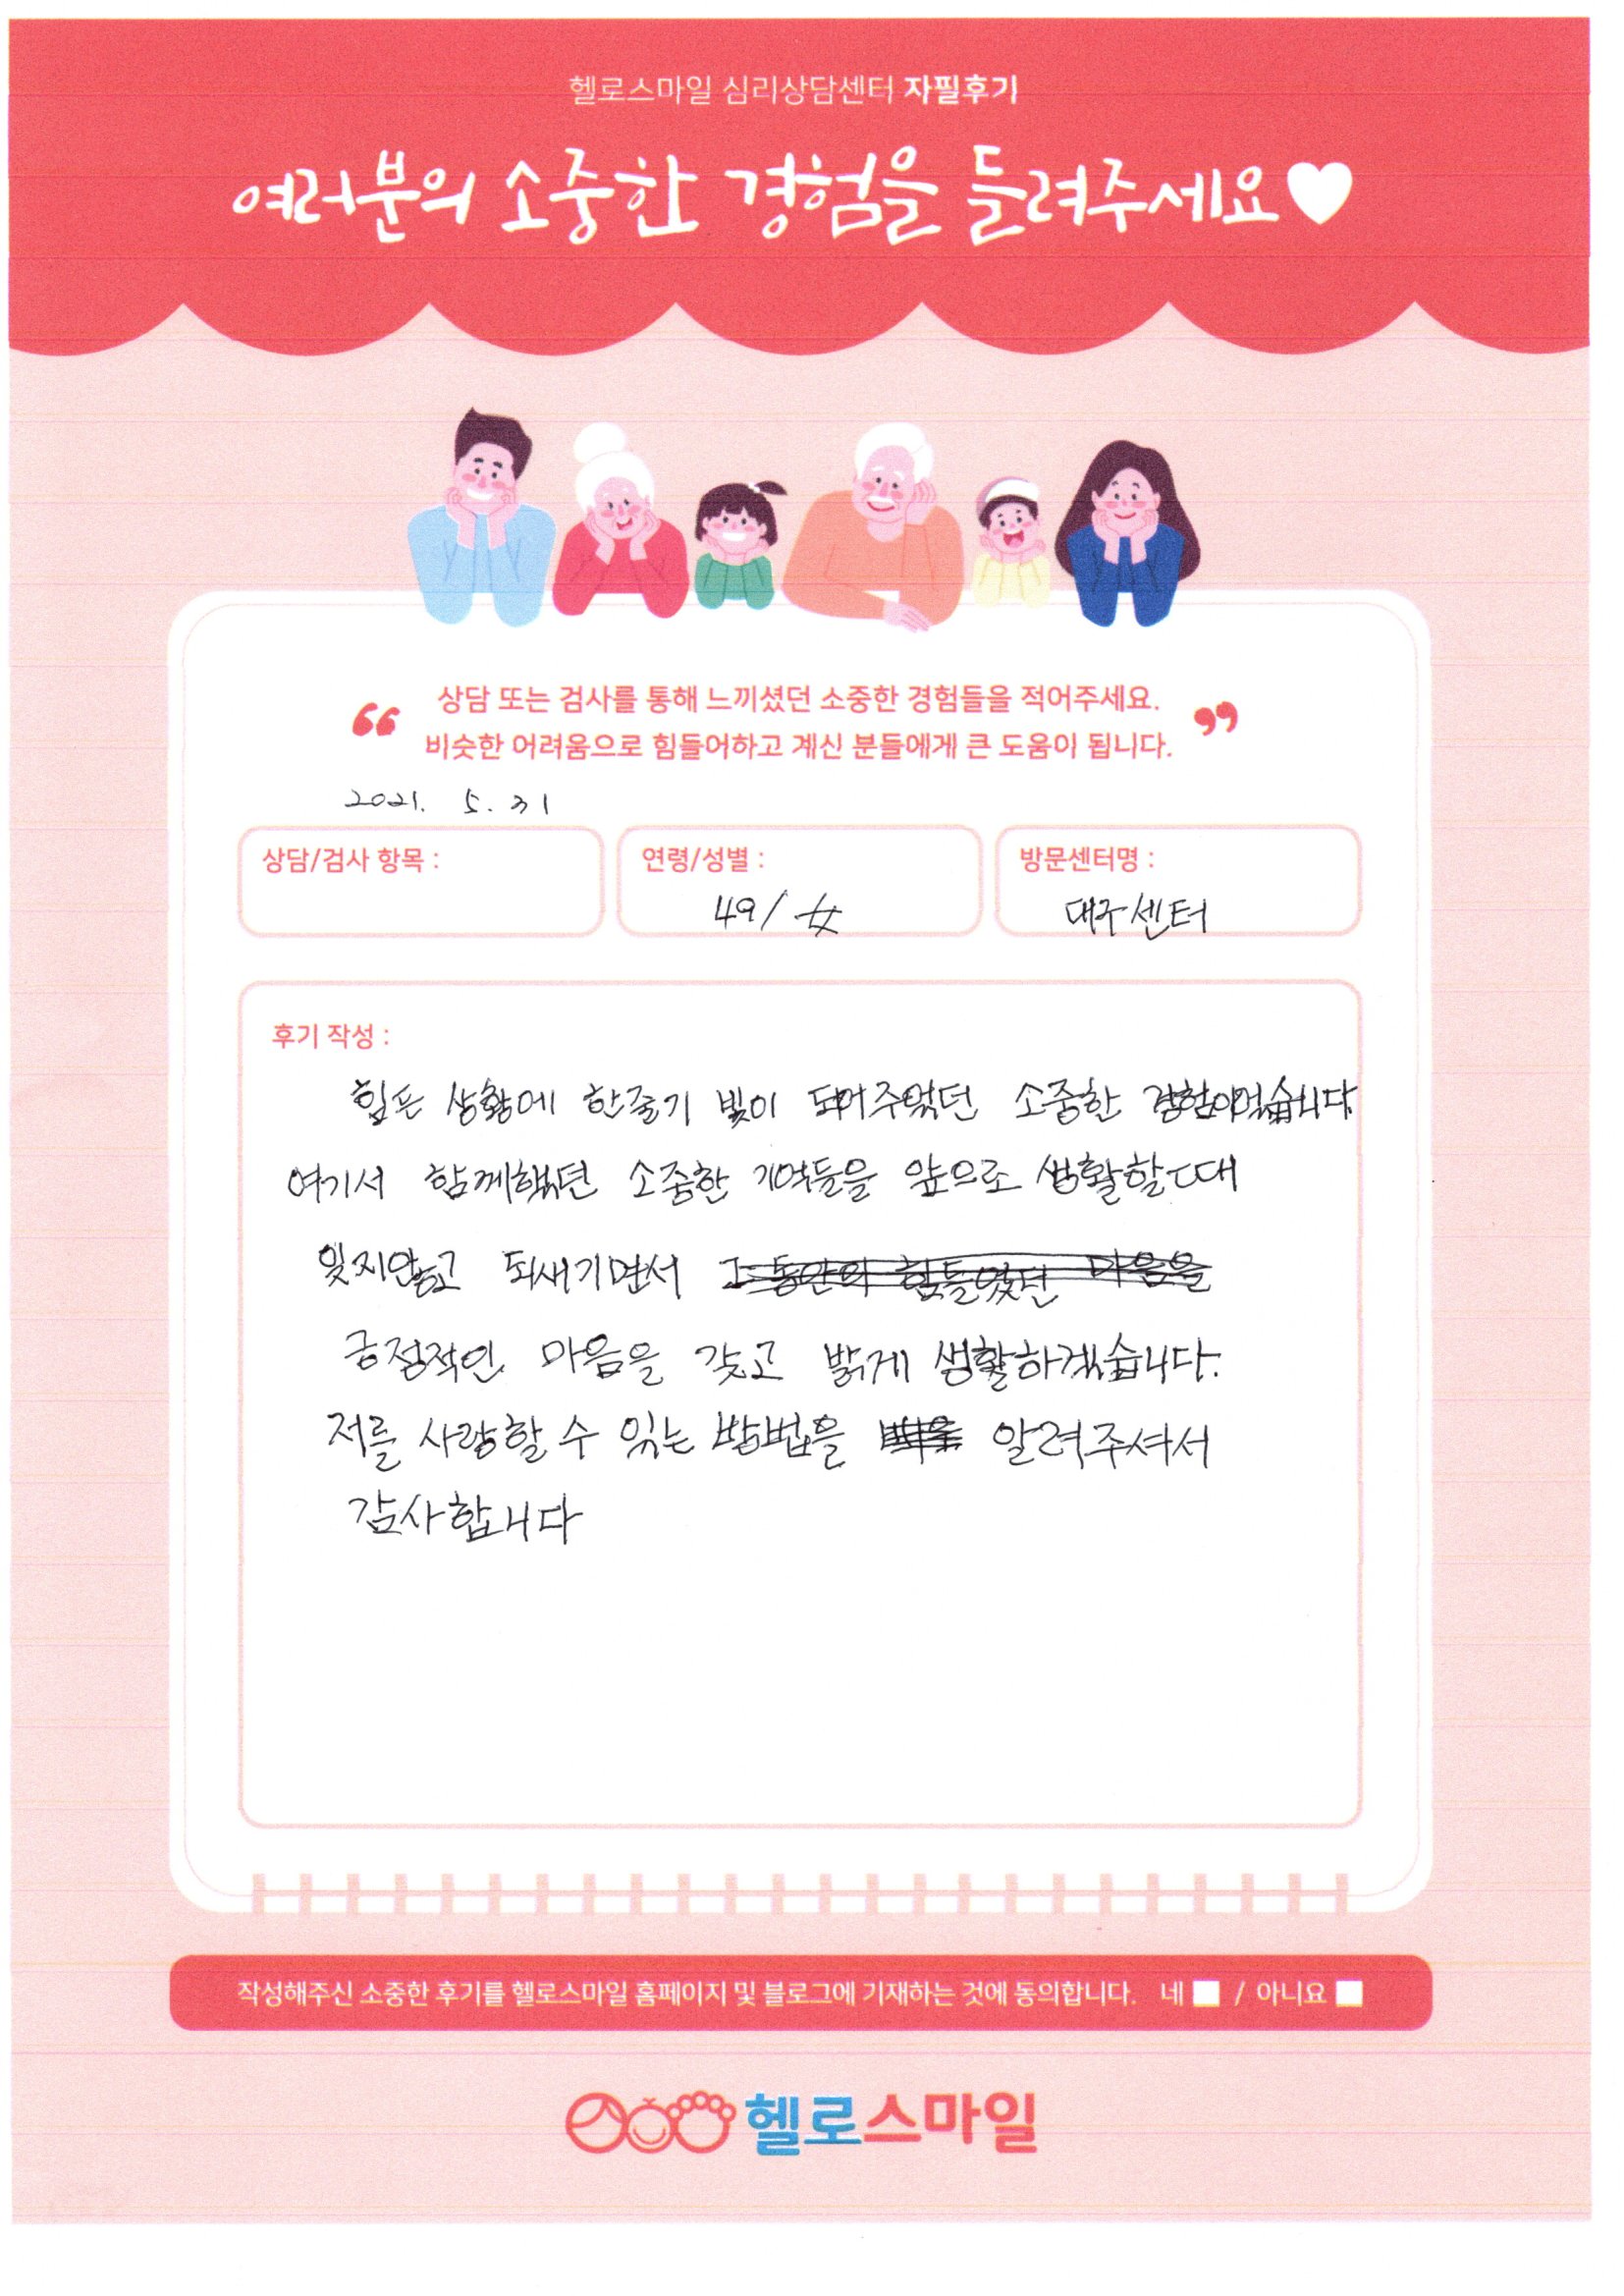 헬로스마일 심리상담센터 자필후기
여러분의 소중한 경험을 들려주세요
상담 또는 검사를 통해 느끼셨던 소중한 경험들을 적어주세요.
비슷한 어려움으로 힘들어하고 계신 분들에게 큰 도움이 됩니다.
2021. 5. 31
상담/검사 항목 : 연령/성별 : 방문센터명 :
49/女 대구센터
후기 작성 :
힘든 상황에 한줄기 빛이 되어주었던 소중한 경험이었습니다
여기서 함께했던 소중한 기억들을 앞으로 생활할때
잊지않고 되새기면서 그동안의 힘들었던 마음을
긍정적인 마음을 갖고 밝게 생활하겠습니다.
저를 사랑할 수 있는 방법을 알려주셔서
감사합니다
작성해주신 소중한 후기를 헬로스마일 홈페이지 및 블로그에 기재하는 것에 동의합니다. 네 / 아니요
헬로스마일